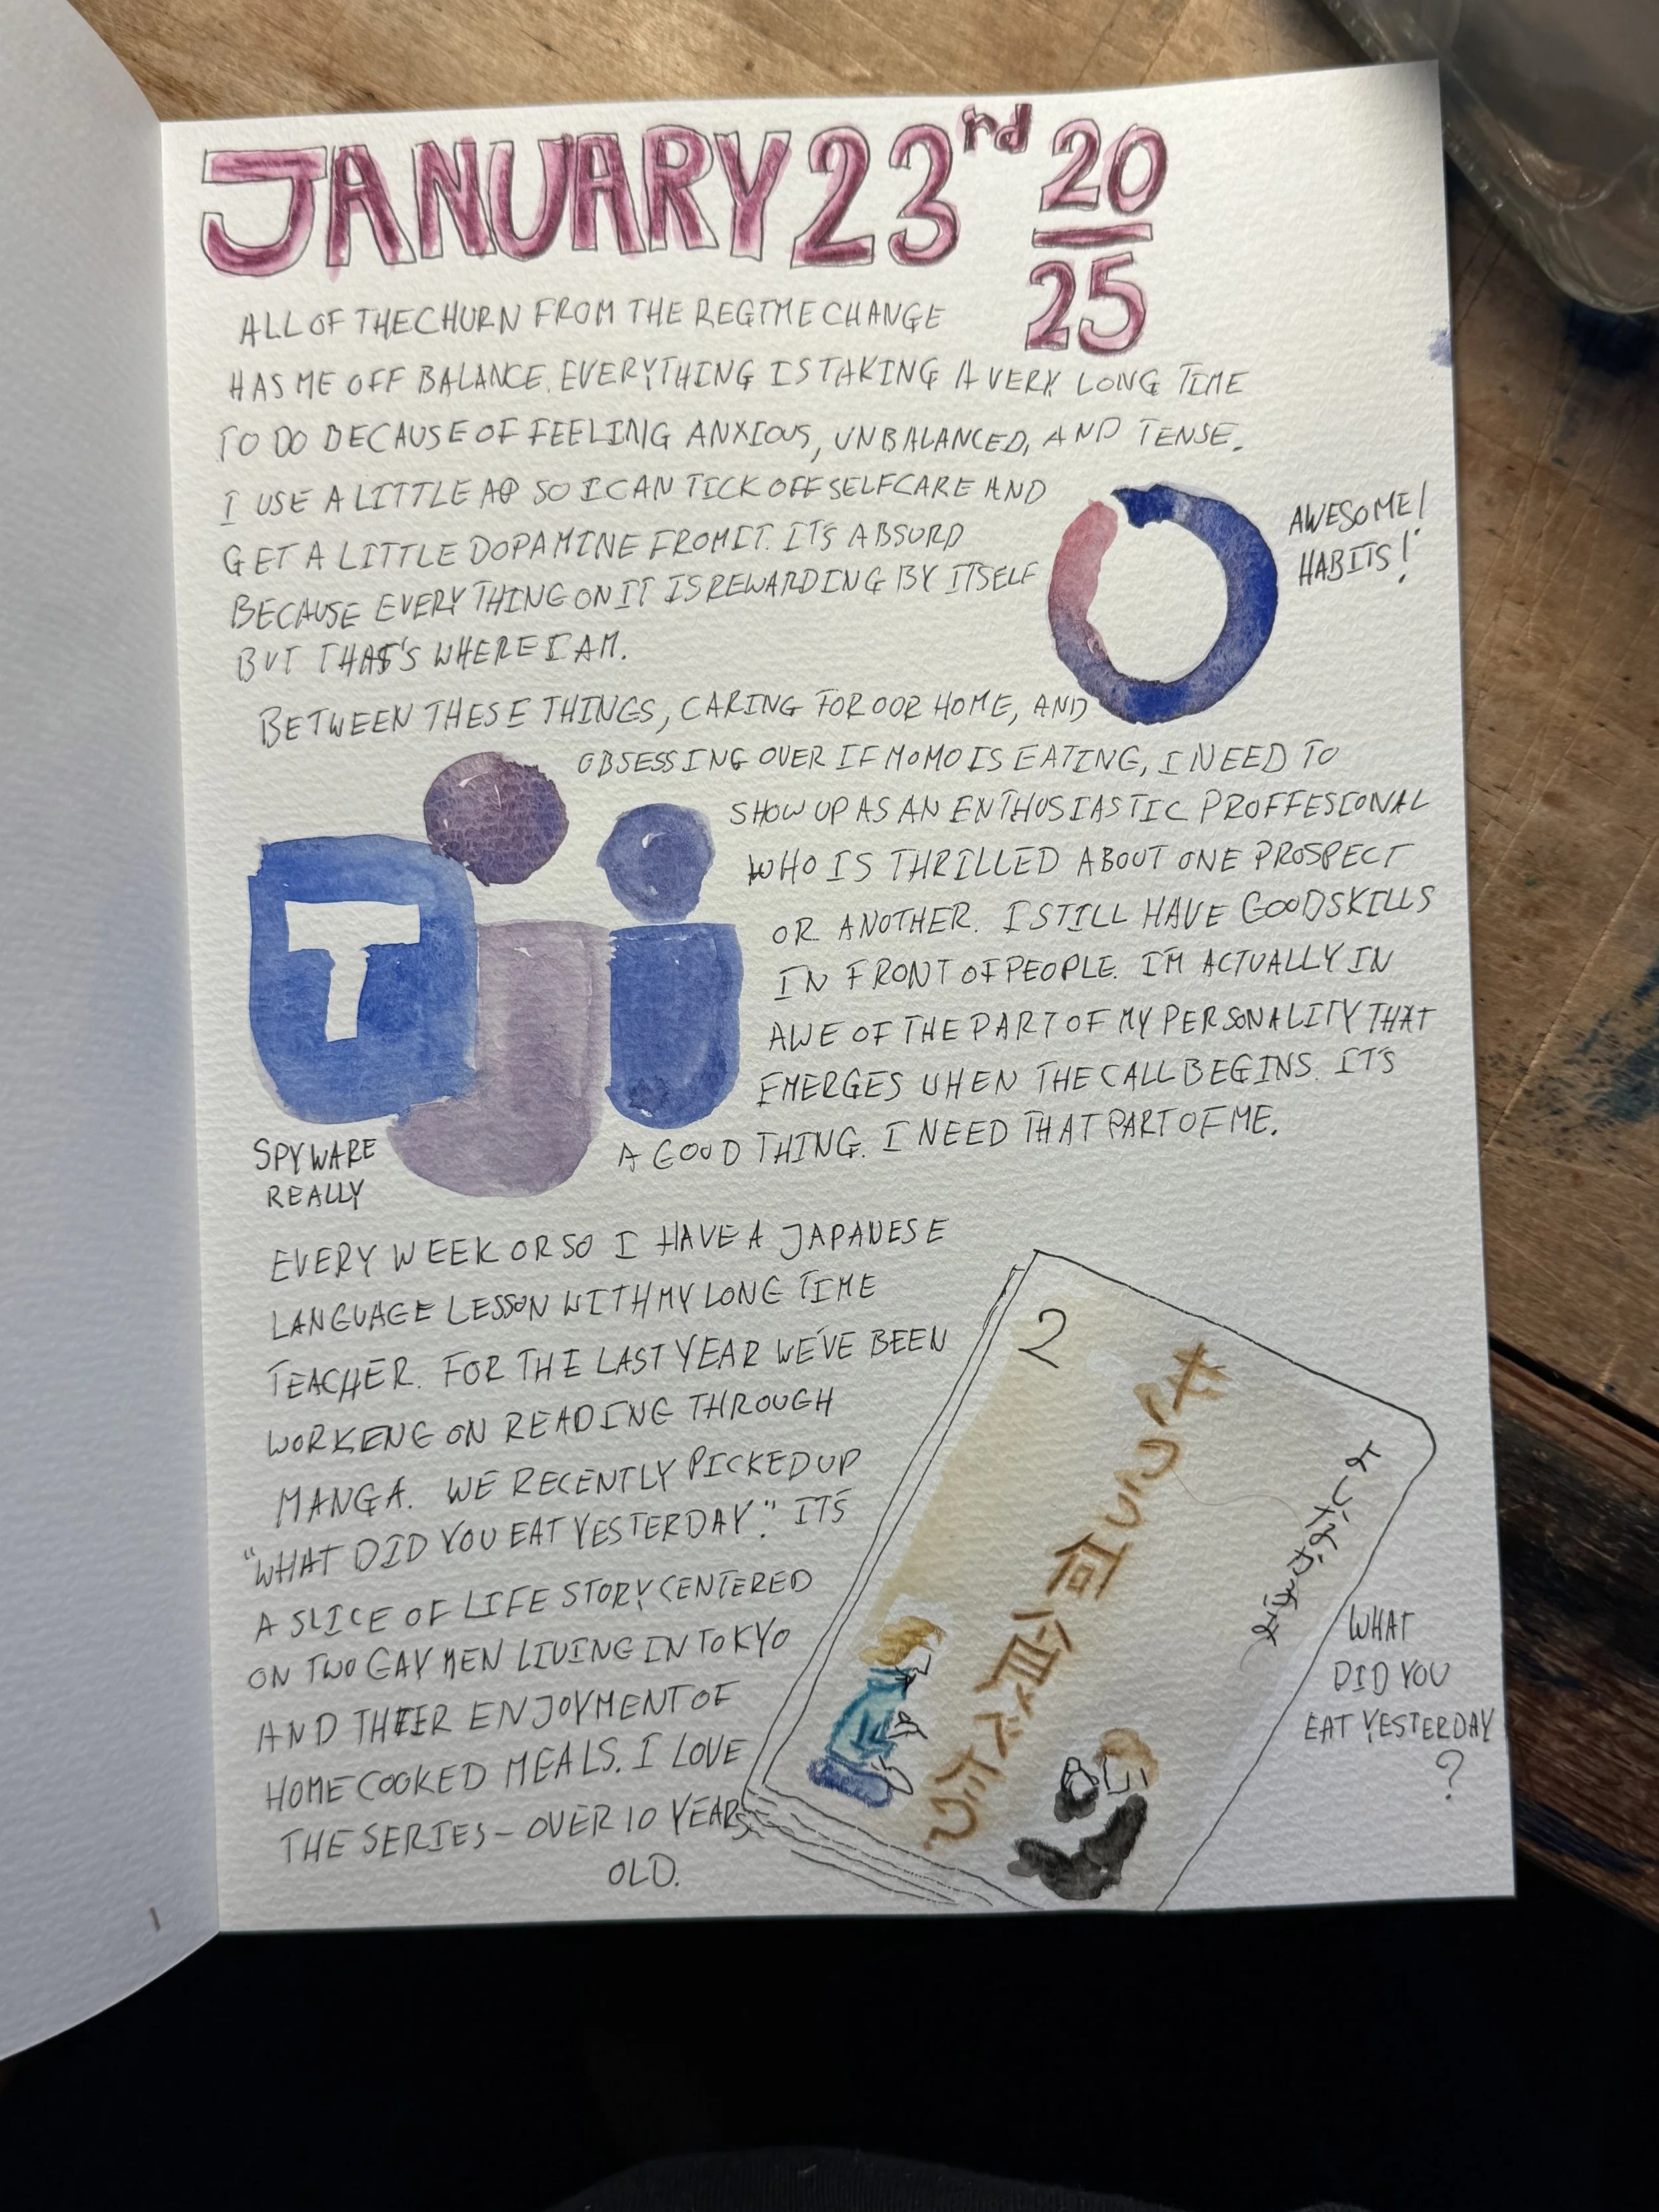 JANUARY 23rd 20
25
ALL OF THE CHURN FROM THE REGIME CHANGE
HAS ME OFF BALANCE. EVERYTHING IS TAKING A VERY LONG TIME
TO DO BECAUSE OF FEELING ANXIOUS, UNBALANCED, AND TENSE.
I USE A LITTLE APP SO I CAN TICK OFF SELFCARE AND
GET A LITTLE DOPAMINE FROM IT. IT'S ABSURD
BECAUSE EVERYTHING ON IT IS REWARDING BY ITSELF
BUT THAT'S WHERE I AM.
AWESOME!
HABITS!
BETWEEN THESE THINGS, CARING FOR OUR HOME, AND
OBSESSING OVER IF MOMO IS EATING, I NEED TO
SHOW UP AS AN ENTHUSIASTIC PROFFESIONAL
WHO IS THRILLED ABOUT ONE PROSPECT
OR ANOTHER. I STILL HAVE GOOD SKILLS
IN FRONT OF PEOPLE. I'M ACTUALLY IN
AWE OF THE PART OF MY PERSONALITY THAT
EMERGES WHEN THE CALL BEGINS. IT'S
A GOOD THING. I NEED THAT PART OF ME.
T
SPYWARE
REALLY
EVERY WEEK OR SO I HAVE A JAPANESE
LANGUAGE LESSON WITH MY LONG TIME
TEACHER. FOR THE LAST YEAR WE'VE BEEN
WORKENG ON READING THROUGH
MANGA. WE RECENTLY PICKED UP
"WHAT DID YOU EAT YESTERDAY." IT'S
A SLICE OF LIFE STORY CENTERED
ON TWO GAY MEN LIVING IN TOKYO
AND THEIR ENJOYMENT OF
HOME COOKED MEALS. I LOVE
THE SERIES – OVER 10 YEARS
OLD.
2
きのう何食べた?
よしながふみ
WHAT
DID YOU
EAT YESTERDAY
?
1